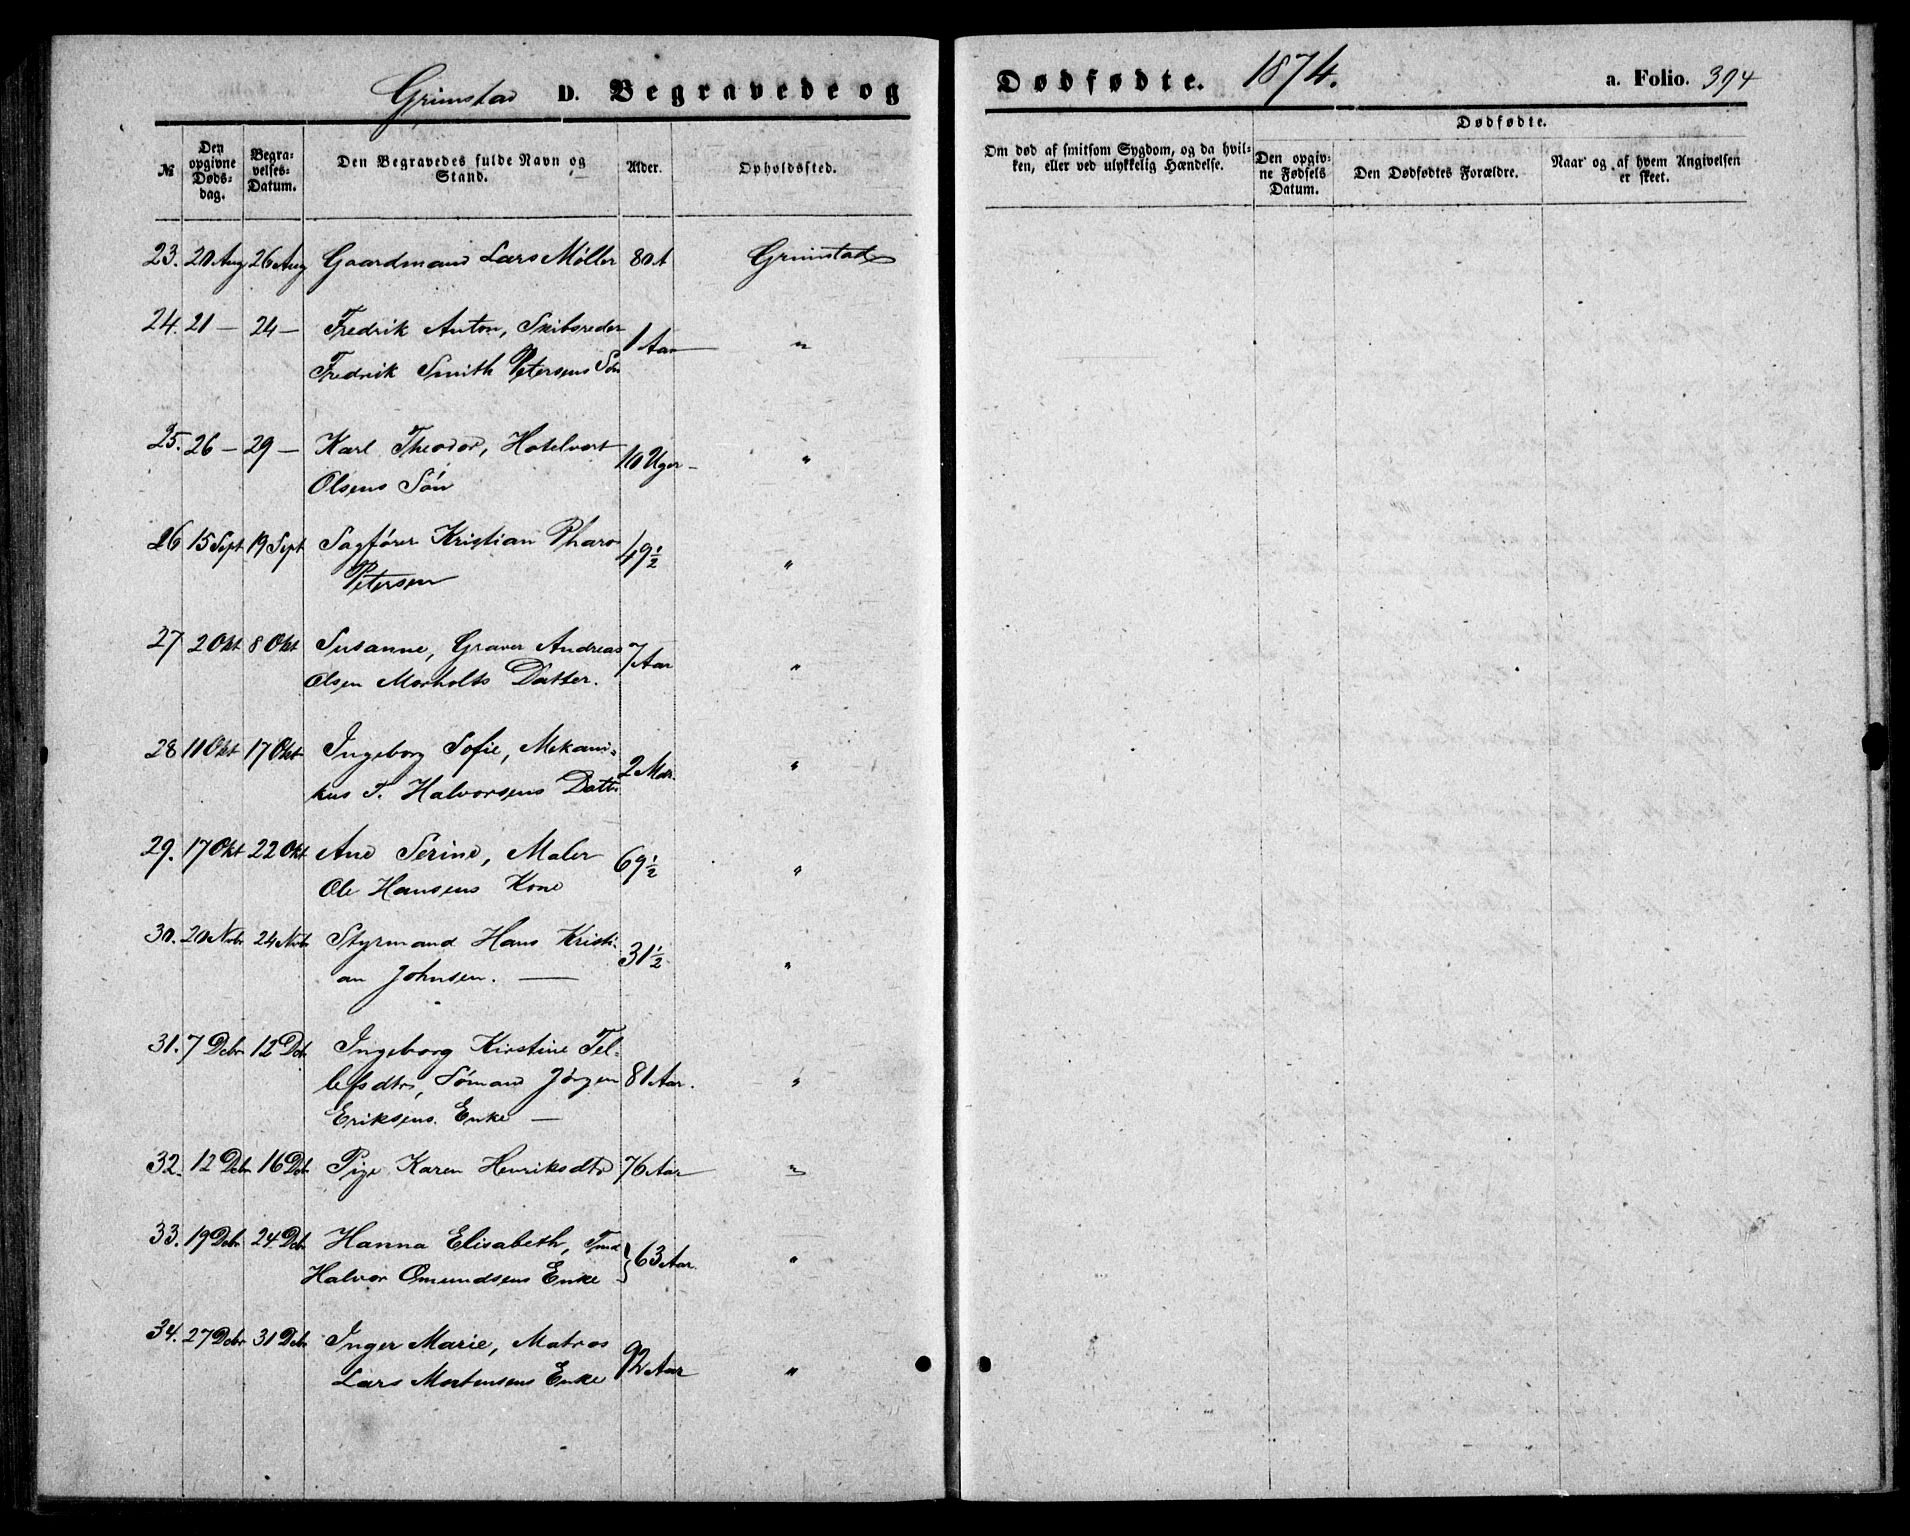 Grimstad D. Begravede og Dødfødte. 1874. a. Folio. 394
№
Den opgivne Dødsdag.
Begravelses-Datum.
Den Begravedes fulde Navn og Stand.
Alder.
Opholdssted.
Om død af smitsom Sygdom, og da hvilken, eller ved ulykkelig Hændelse.
Dødfødte.
Den opgivne Fødsels Datum.
Den Dødfødtes Forældre.
Naar og af hvem Angivelsen er skeet.
23. 20 Aug 26 Aug Gaardmand Lars Møller 80 A Grimstad
24. 21 — 24 — Fredrik Anton, Skibsreder 1 Aar "
Fredrik Smith Petersens Søn
25. 26 — 29 — Karl Theodor, Hotelvert 10 Uger "
Olsens Søn
26 15 Sept 19 Sept Sagfører Kristian Pharo 49½ "
Petersen
27 2 Okt 8 Okt Susanne, Graver Andreas 7 Aar "
Olsen Morholts Datter.
28 11 Okt 17 Okt Ingeborg Sofie, Mekani- 2 Mdr. "
kus T. Halvorsens Datt.
29. 17 Okt 22 Okt Ane Serine, Maler 69½ "
Ole Hansens Kone
30. 20 Novbr 24 Novbr Styrmand Hans Kristi- 31½ "
an Johnsen. —
31. 7 Debr 12 Debr Ingeborg Kirstine Tel-
lefsdtr, Sømand Jørgen 81 Aar. "
Eriksens Enke —
32. 12 Debr 16 Debr Pige Karen Henriksdtr 76 Aar "
33. 19 Debr 24 Debr Hanna Elisabeth, Tmd 63 Aar. "
Halvor Omundsens Enke
34. 27 Debr 31 Debr Inger Marie, Matros 92 Aar "
Lars Mortensens Enke